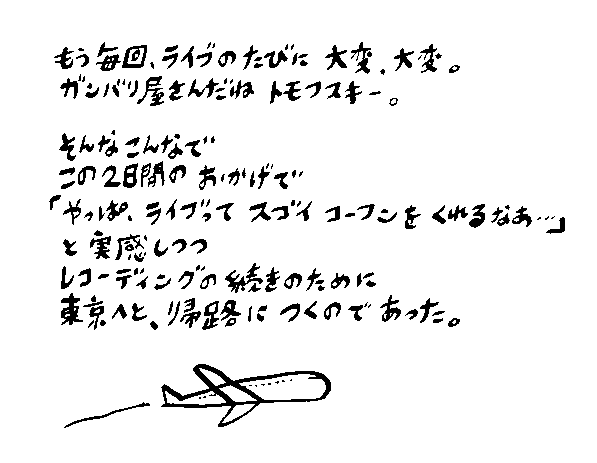 もう毎回、ライブのたびに 大変、大変。
ガンバリ屋さんだね トモフスキー。
そんなこんなで
この2日間の おかげで
「やっぱ、ライブって スゴイ コーフンを くれるなあ…」
と 実感しつつ
レコーディングの続きのために
東京へと、帰路に つくのであった。